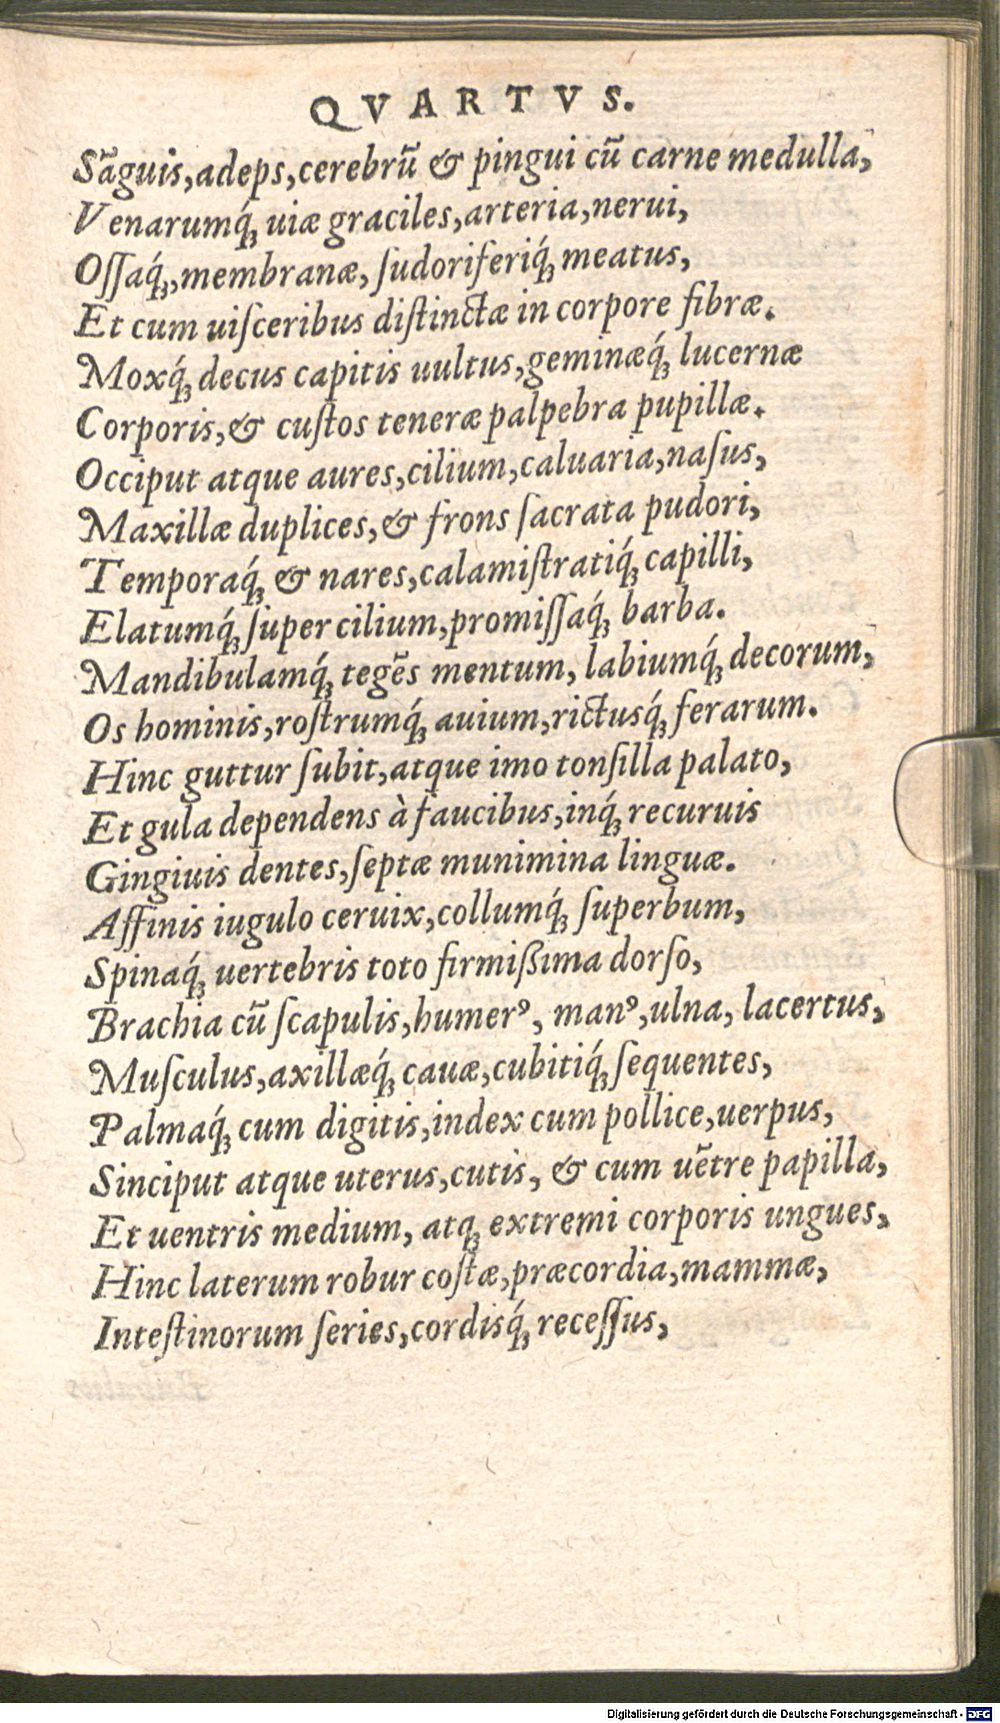 QVARTVS.
Sãguis, adeps, cerebrũ & pingui cũ carne medulla,
Venarumq́ꝫ uiæ graciles, arteria, nerui,
Oſſaq́ꝫ, membranæ, ſudoriferiq́ꝫ meatus,
Et cum uiſceribus diſtinctæ in corpore fibræ.
Moxq́ꝫ decus capitis uultus, geminæq́ꝫ lucernæ
Corporis, & cuſtos teneræ palpebra pupillæ.
Occiput atque aures, cilium, caluaria, naſus,
Maxillæ duplices, & frons ſacrata pudori,
Temporaq́ꝫ & nares, calamiſtratiq́ꝫ capilli,
Elatumq́ꝫ ſuper cilium, promiſſaq́ꝫ barba.
Mandibulamq́ꝫ tegẽs mentum, labiumq́ꝫ decorum,
Os hominis, roſtrumq́ꝫ auium, rictusq́ꝫ ferarum.
Hinc guttur ſubit, atque imo tonſilla palato,
Et gula dependens à faucibus, inq́ꝫ recuruis
Gingiuis dentes, ſeptæ munimina linguæ.
Affinis iugulo ceruix, collumq́ꝫ ſuperbum,
Spinaq́ꝫ uertebris toto firmißima dorſo,
Brachia cũ ſcapulis, humerꝰ, manꝰ, ulna, lacertus,
Muſculus, axillæq́ꝫ cauæ, cubitiq́ꝫ ſequentes,
Palmaq́ꝫ cum digitis, index cum pollice, uerpus,
Sinciput atque uterus, cutis, & cum uẽtre papilla,
Et uentris medium, atqꝫ extremi corporis ungues,
Hinc laterum robur coſtæ, præcordia, mammæ,
Inteſtinorum ſeries, cordisq́ꝫ receſſus,
Digitalisierung gefördert durch die Deutsche Forschungsgemeinschaft - DFG